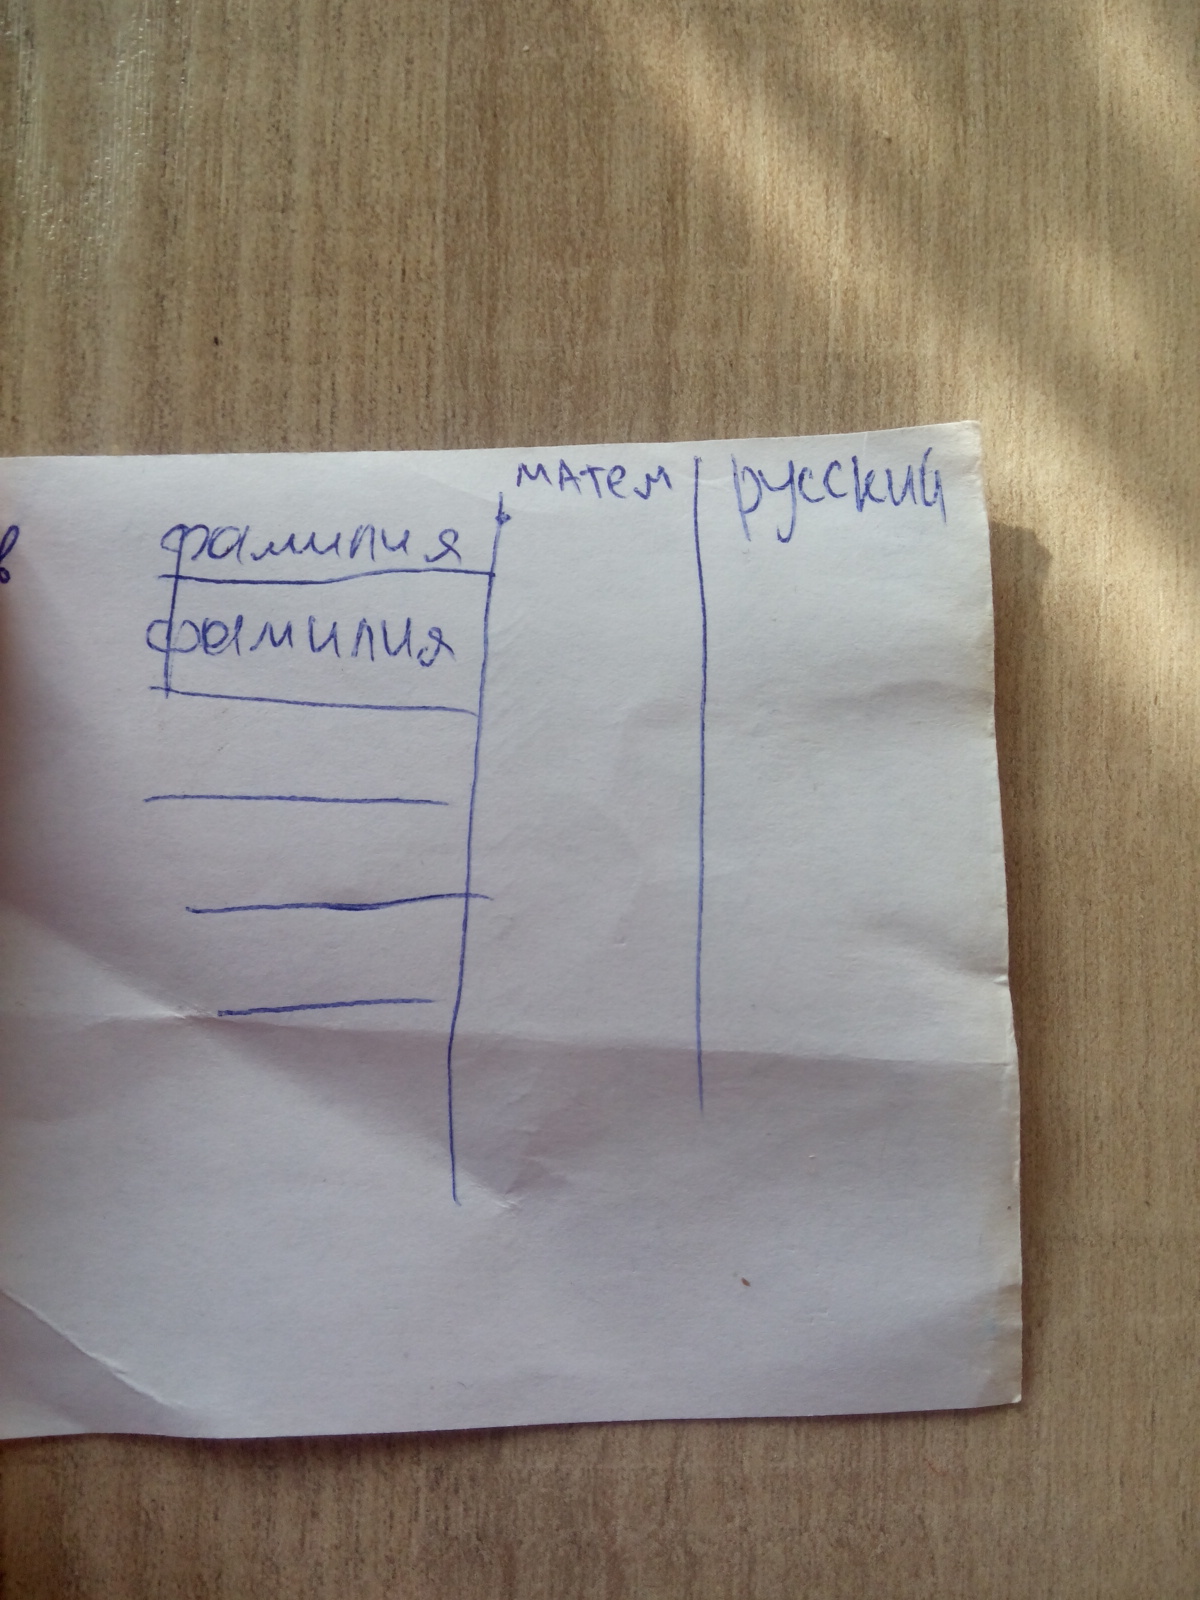 матем русский
фамилия
фамилия